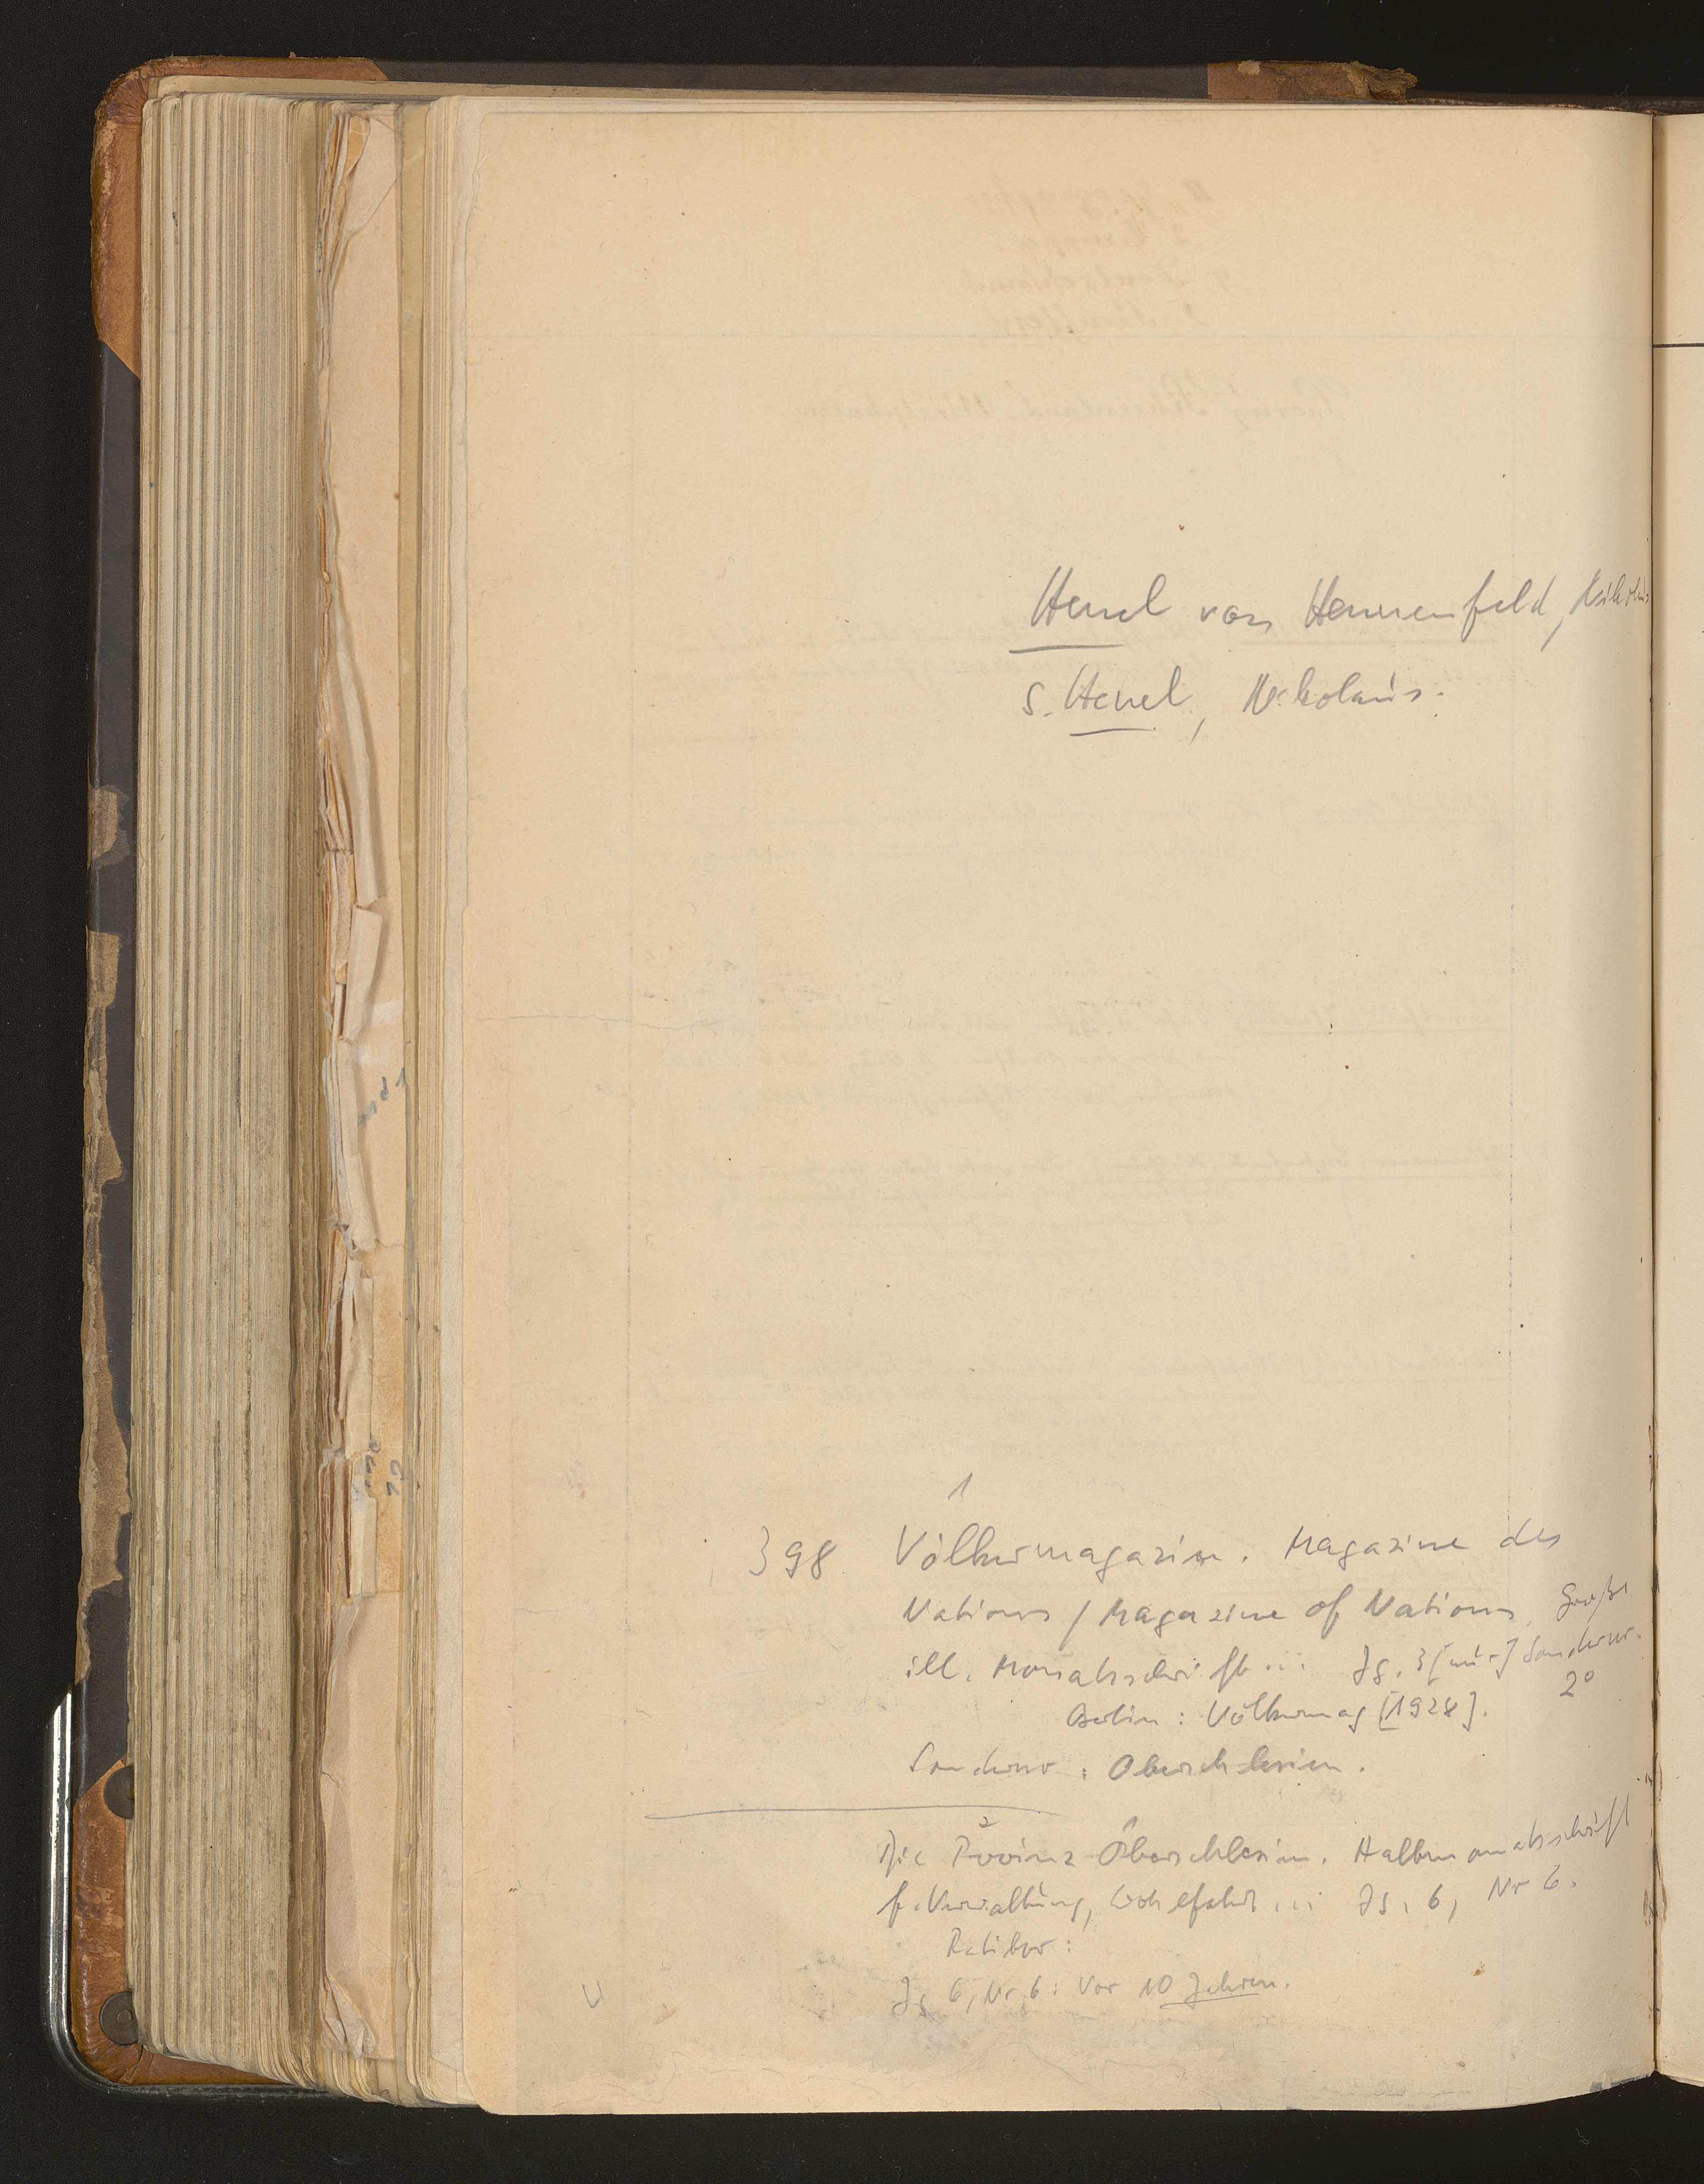 Henel von Hennenfeld, Nikolaus
s. Henel, Nikolaus.
1
398 Völkermagazin. Magazine des
Nations / Magazine of Nations. Große
ill. Monatsschrift... Jg. 3 [nur] Sondernr.
2°
Berlin: Völkermag [1928].
Sondernr: Oberschlesien.
2 1
Die Provinz Oberschlesien. Halbmonatsschrift
f. Verwaltung, Wohlfahrt... Jg. 6, Nr 6.
Ratibor:
Jg 6, Nr 6: Vor 10 Jahren.